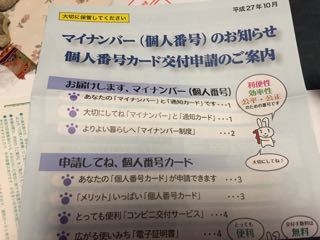 大切に保管してください
平成27年10月
マイナンバー（個人番号）のお知らせ
個人番号カード交付申請のご案内
お届けします、マイナンバー（個人番号）
あなたの「マイナンバー」と「通知カード」です…1
大切にしてね「マイナンバー」と「通知カード」…1
よりよい暮らしへ「マイナンバー制度」…2
利便性
効率性
公平・公正
のための番号です
大切にしてね♪
申請してね、個人番号カード
あなたの「個人番号カード」が申請できます…3
「メリット」いっぱい「個人番号カード」…3
とっても便利「コンビニ交付サービス」…4
広がる使いみち「電子証明書」…4
とっても
便利
交付手数料は
無料